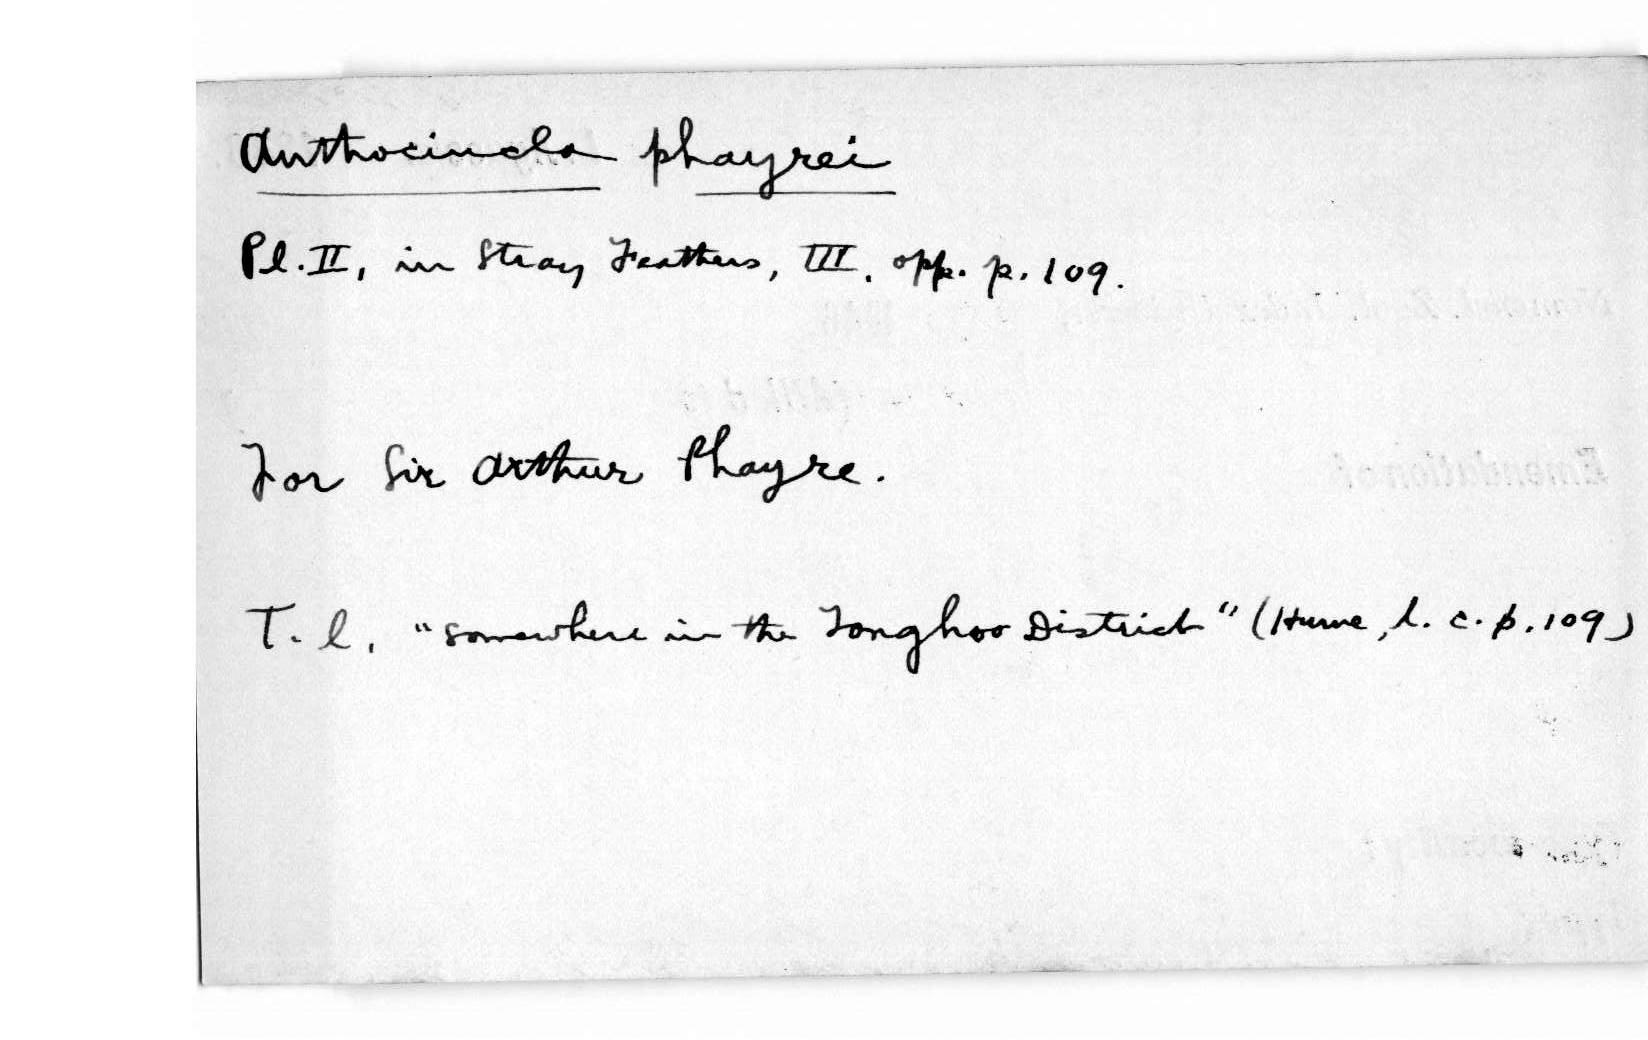 Anthocincla phayrei
Pl. II, in Stray Feathers, III, opp. p. 109.
For Sir Arthur Phayre.
T. l. "somewhere in the Tonghoo District" (Hume, l. c. p. 109)